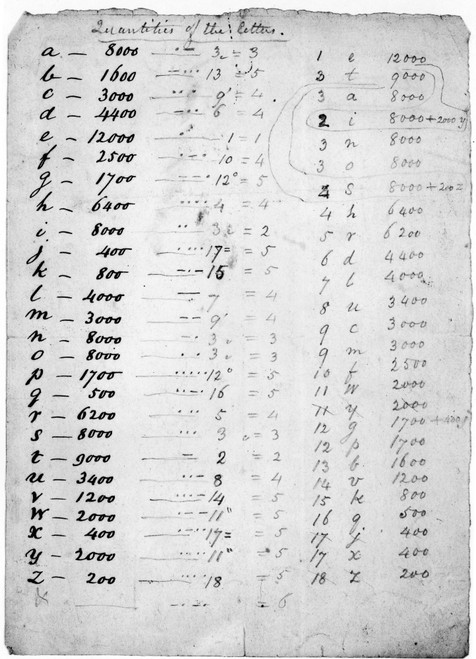 Quantities of the letters.
a — 8000 3 = 3
b — 1600 13 = 5
c — 3000 9 = 4
d — 4400 6 = 4
e — 12000 1 = 1
f — 2500 10 = 4
g — 1700 12 = 5
h — 6400 4 = 4
i — 8000 3 = 2
j — 400 17 = 5
k — 800 15 = 5
l — 4000 7 = 4
m — 3000 9 = 4
n — 8000 3 = 3
o — 8000 3 = 3
p — 1700 12 = 5
q — 500 16 = 5
r — 6200 5 = 4
s — 8000 3 = 3
t — 9000 2 = 2
u — 3400 8 = 4
v — 1200 14 = 5
W — 2000 11" = 5
x — 400 17 = 5
y — 2000 11" = 5
z — 200 18 = 5
= 6
1 e 12000
3 t 9000
3 a 8000
2 i 8000+2000 y
3 n 8000
3 o 8000
s 8000+200=
4 h 6400
5 r 6200
6 d 4400
7 l 4000
8 u 3400
9 c 3000
9 m 3000
10 f 2500
11 W 2000
11 y 2000
12 g 1700
12 p 1700
13 b 1600
14 v 1200
15 k 800
16 q 500
17 j 400
17 x 400
18 z 200